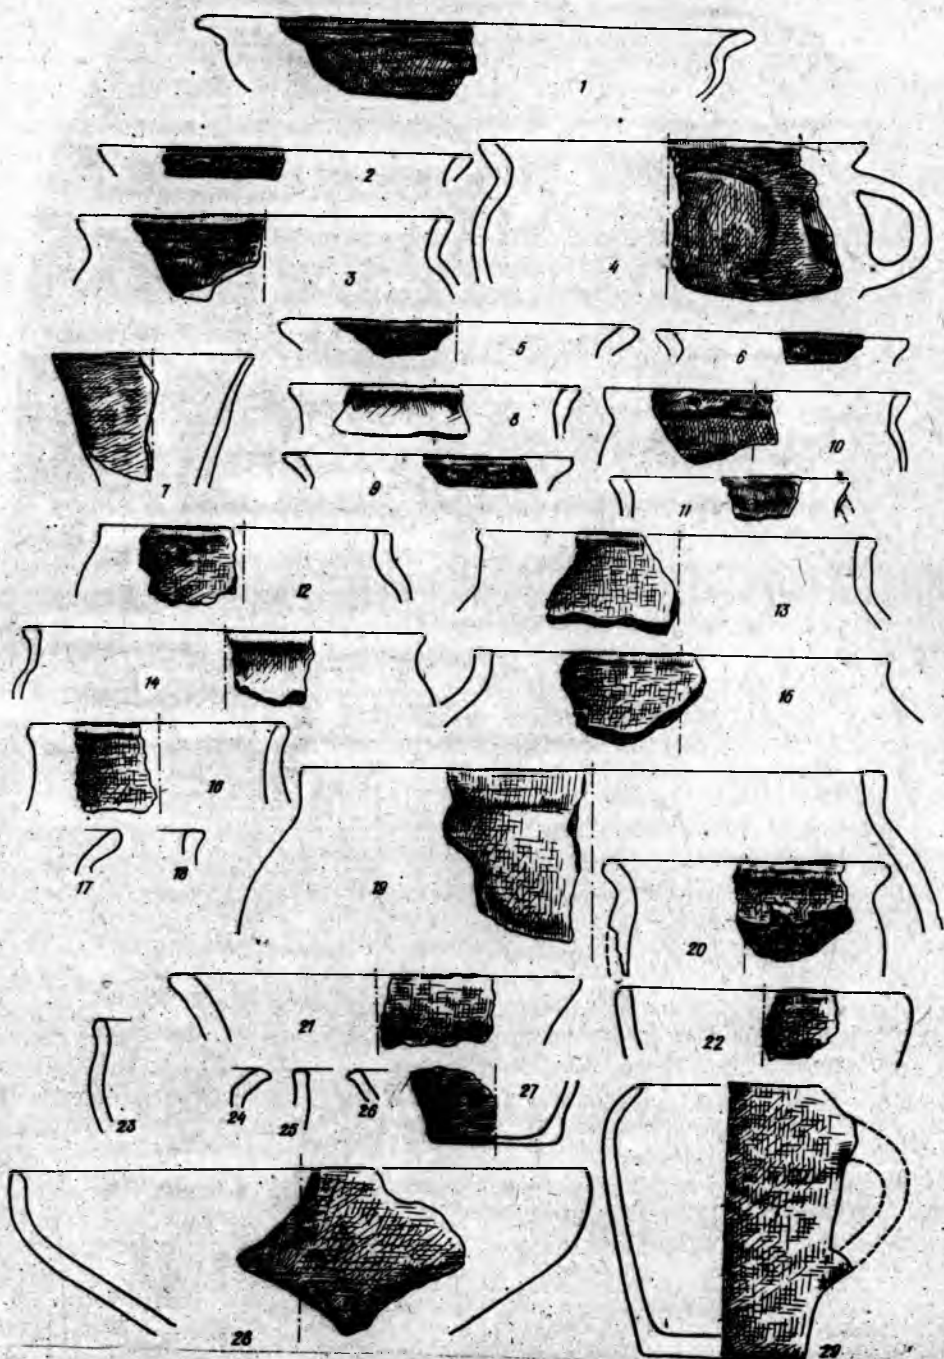 1
2
3
4
5
6
7
8
9
10
11
12
13
14
15
16
17
18
19
20
21
22
23
24
25
26
27
28
29